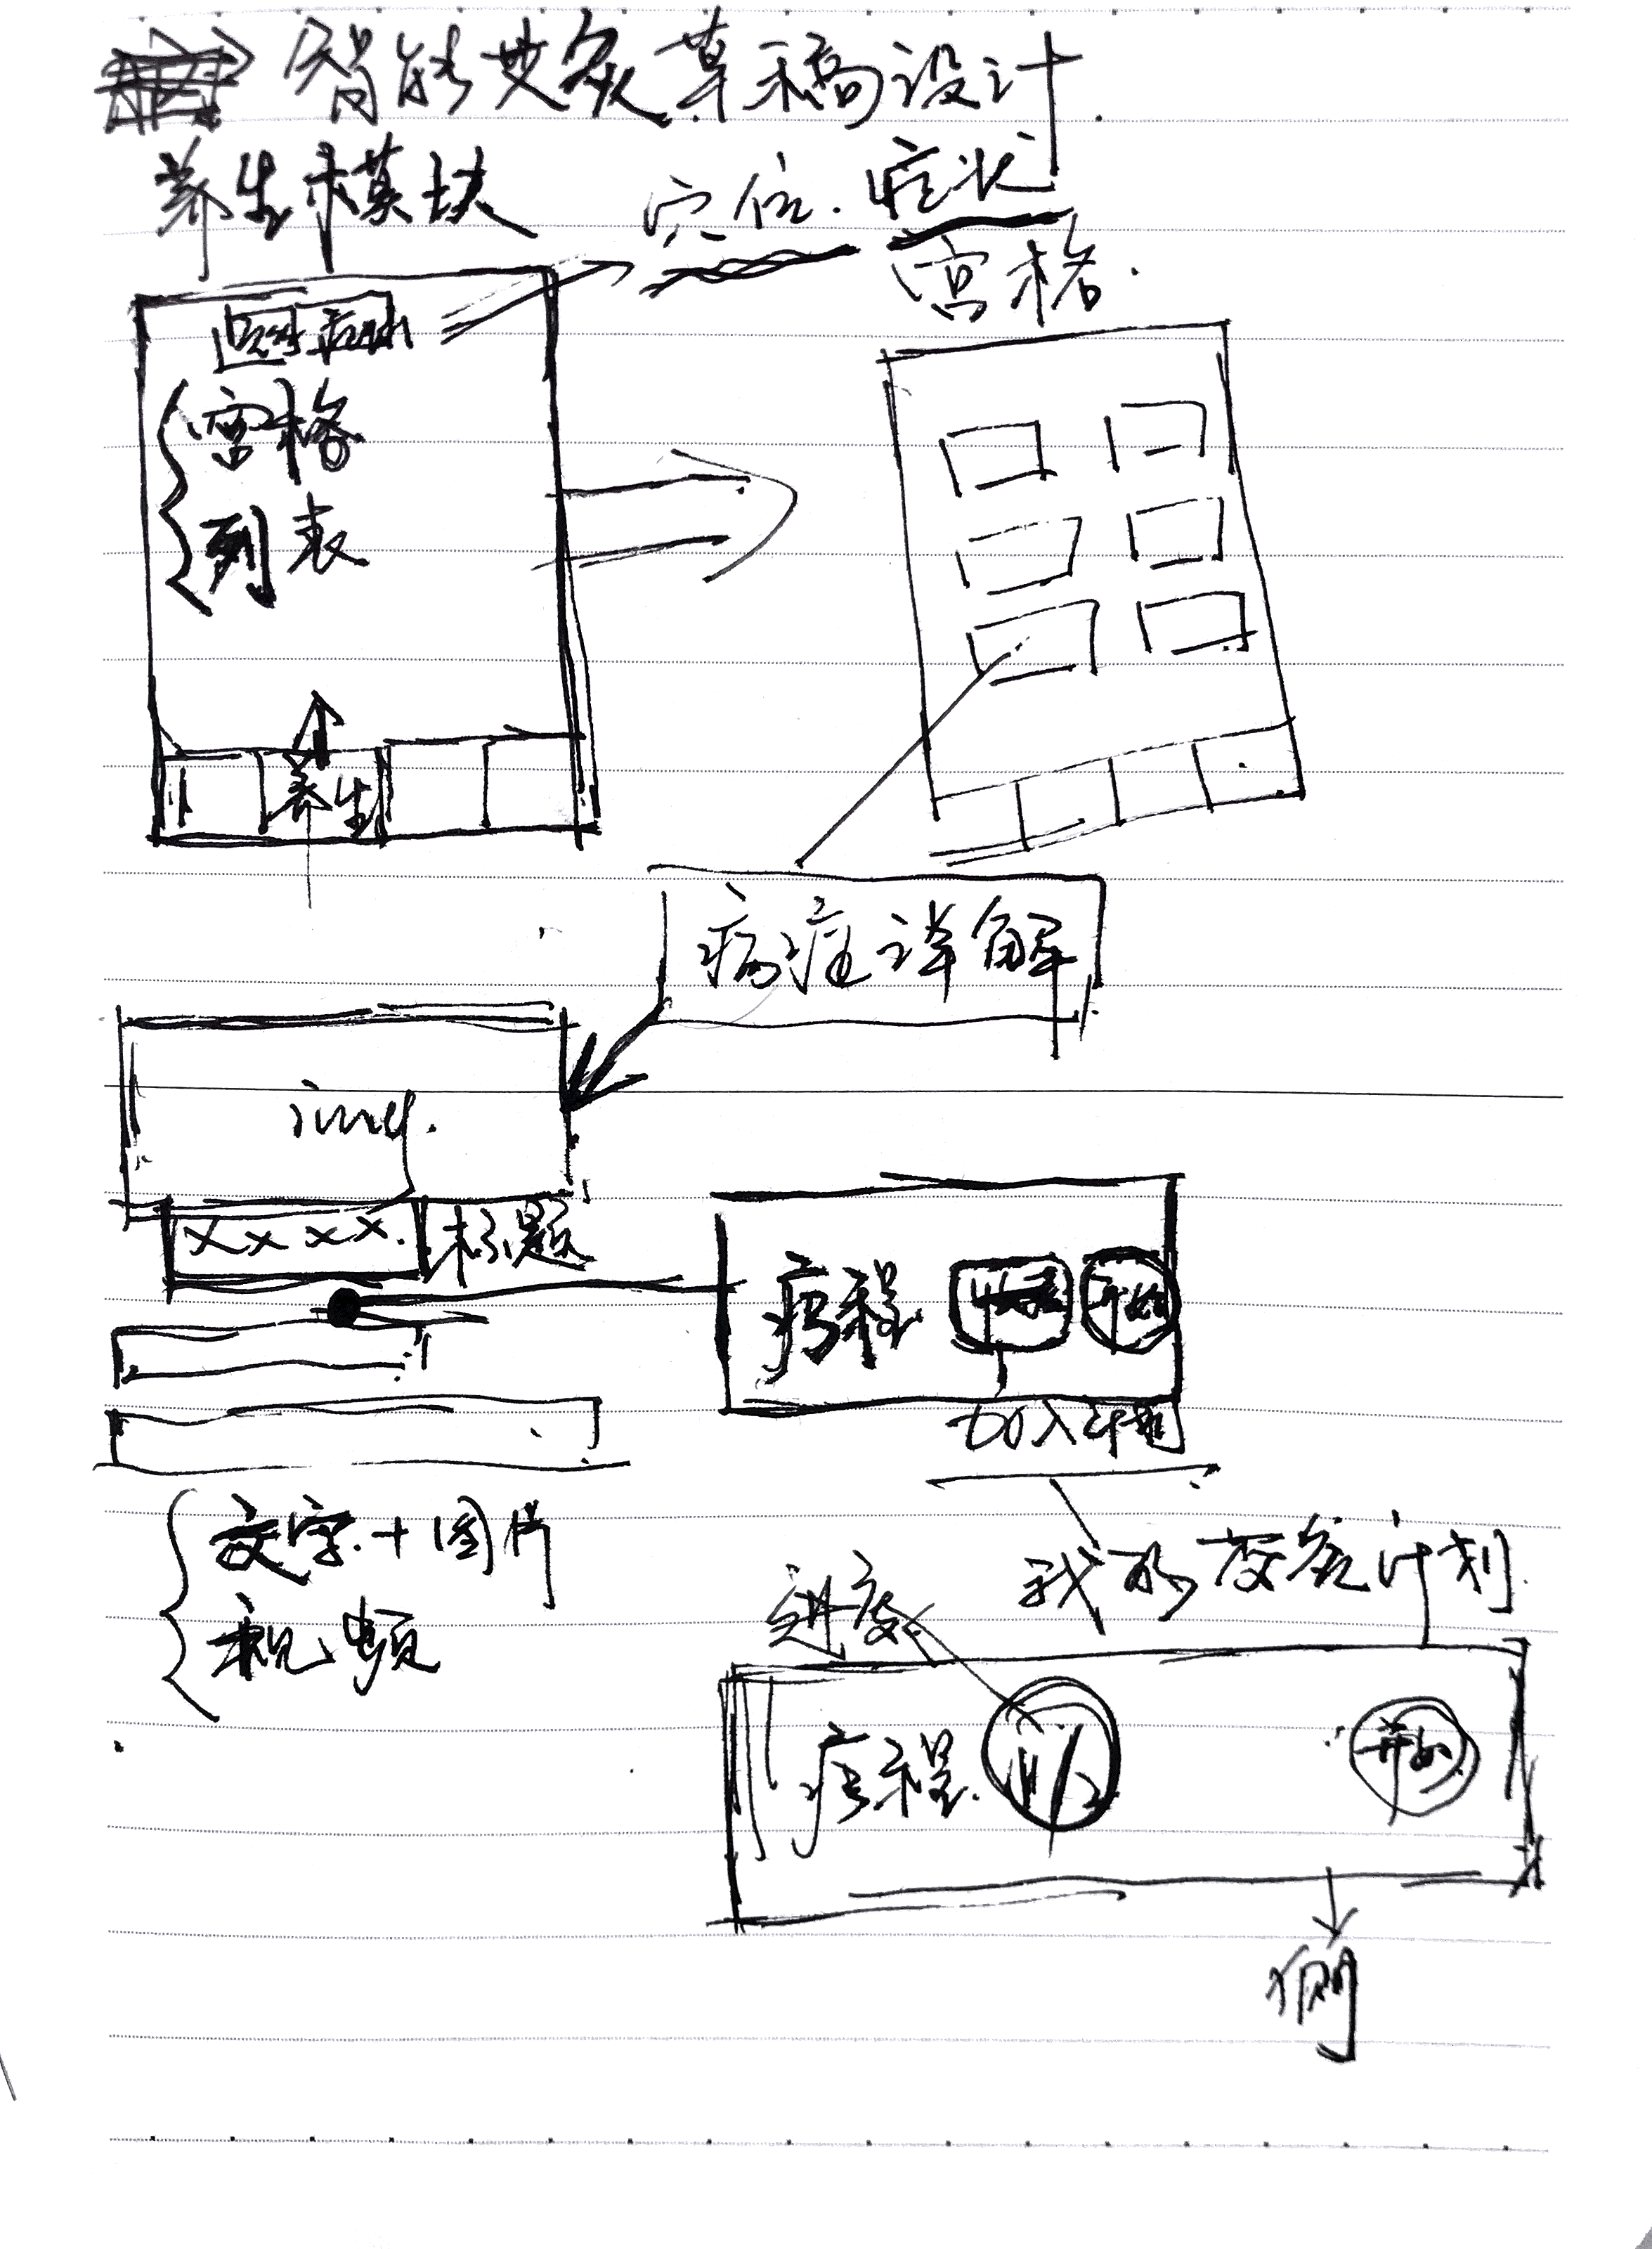 智能艾灸草稿设计
养生模块
穴位. 症状
宫格.
宫格
列表
养生
病症详解
img.
xxxx. 标题
疗程 开始
加入计划
文字.+图片
视频
我的
计划.
进度
疗程.
开始